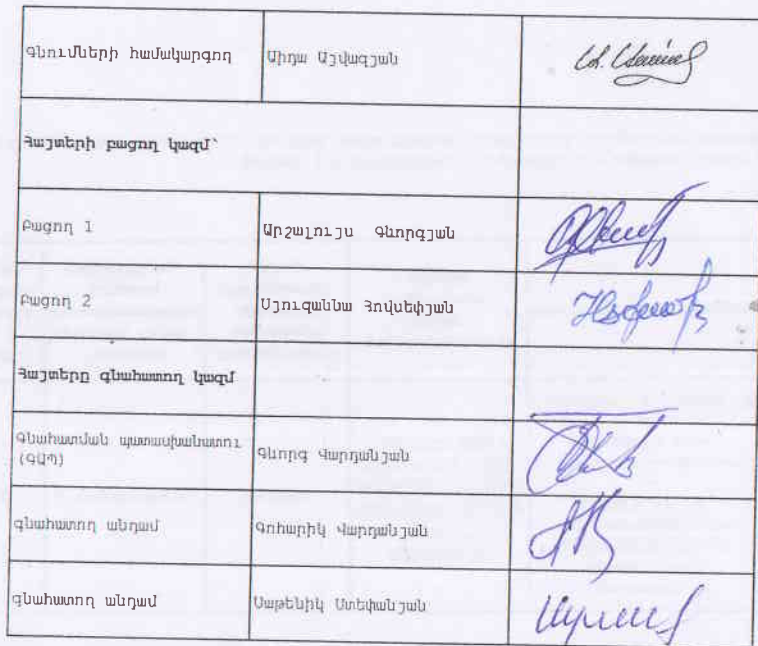 Գնումների համակարգող Աիդա Այվազյան
Հայտերի բացող կազմ՝
Բացող 1 Արշալույս Գևորգյան
Բացող 2 Սյուզաննա Հովսեփյան
Հայտերը գնահատող կազմ
Գնահատման պատասխանատու Գևորգ Վարդանյան
(ԳԱՊ)
գնահատող անդամ Գոհարիկ Վարդանյան
գնահատող անդամ Սաթենիկ Ստեփանյան